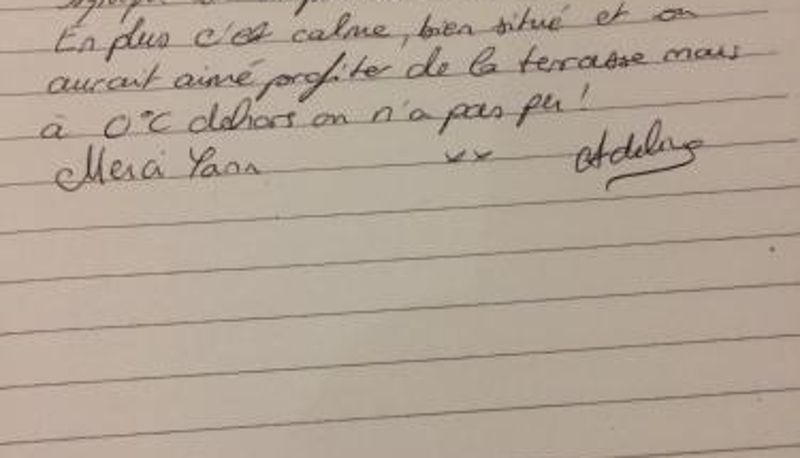 En plus c'est calme, bien situé et on
aurait aimé profiter de la terrasse mais
à 0°C dehors on n'a pas pu !
Merci Yann
Adeline